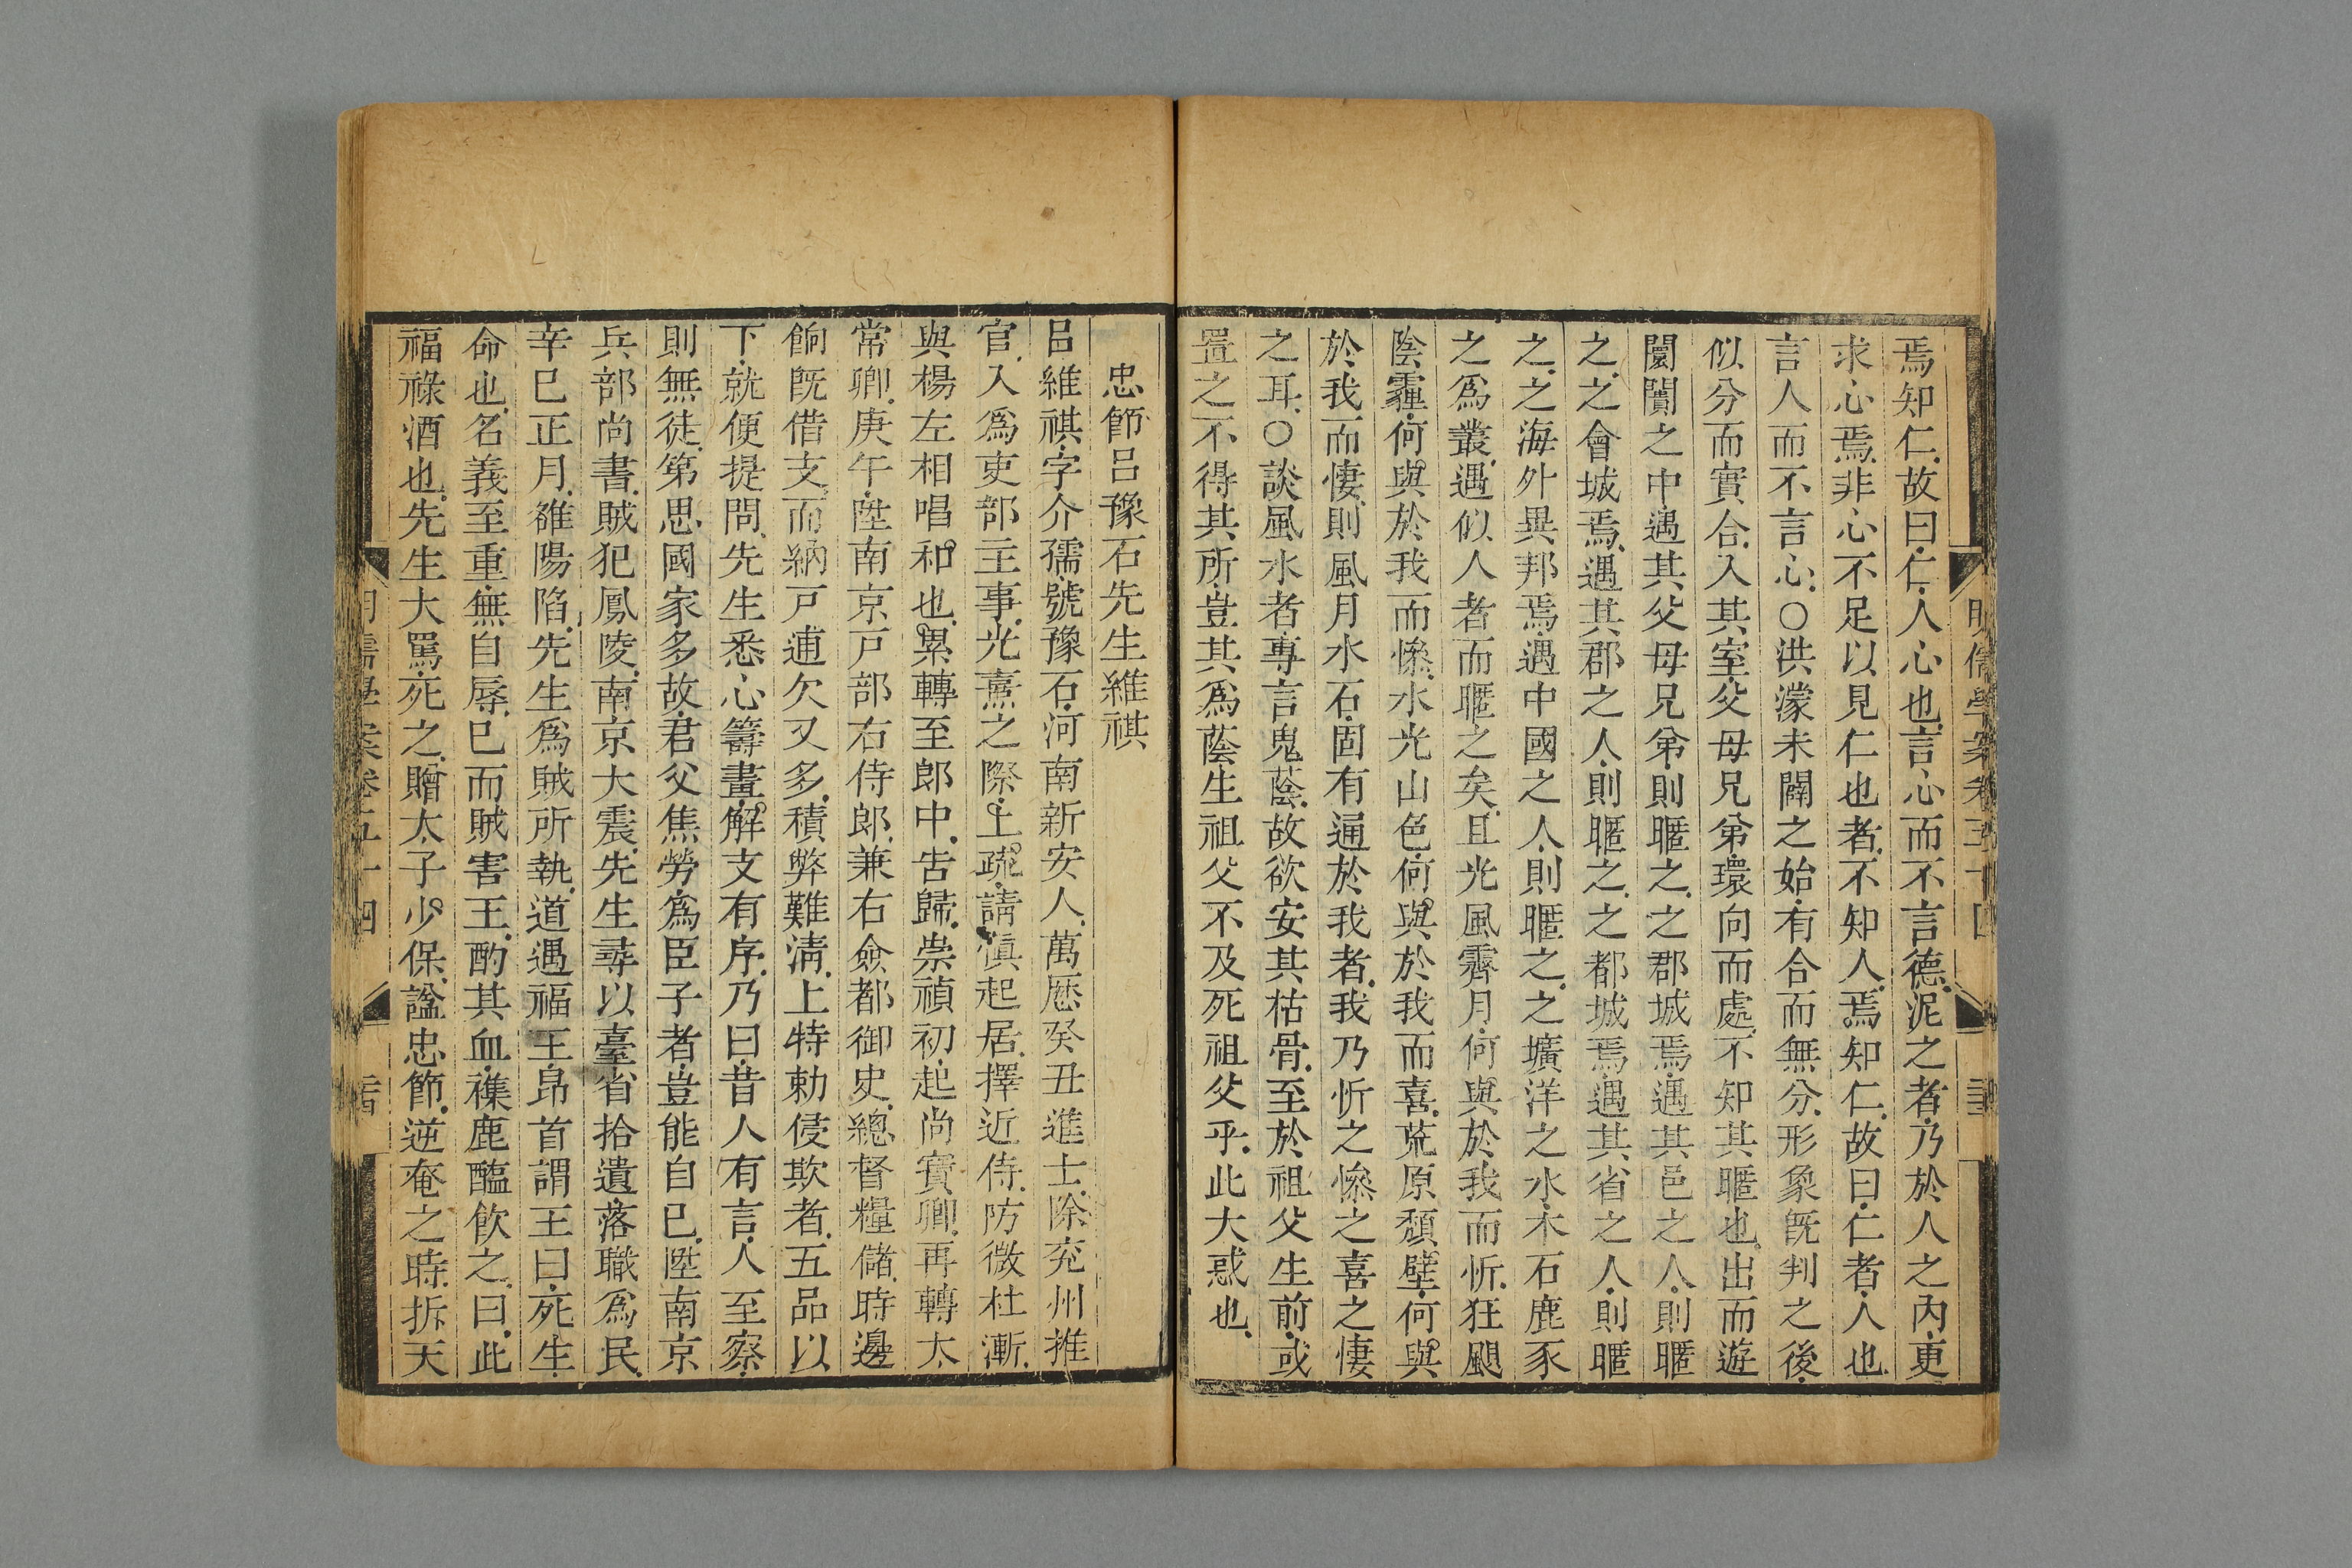 焉知仁故曰仁人心也言心而不言德泥之者乃於人之內更
求心焉非心不足以見仁也者不知人焉知仁故曰仁者人也
言人而不言心○洪濛未闢之始有合而無分形象既判之後
似分而實合入其室父母兄弟環向而處不知其暱也出而遊
闤闠之中遇其父母兄弟則暱之之郡城焉遇其邑之人則暱
之之會城焉遇其郡之人則暱之之都城焉遇其省之人則暱
之之海外異邦焉遇中國之人則暱之之壙洋之水木石鹿豕
之爲叢遇似人者而暱之矣且光風霽月何與於我而忻狂颶
陰霾何與於我而慘水光山色何與於我而喜荒原頹壁何與
於我而悽則風月水石固有通於我者我乃忻之慘之喜之悽
之耳○談風水者專言鬼蔭故欲安其枯骨至於祖父生前或
置之不得其所豈其爲蔭生祖父不及死祖父乎此大惑也
忠節呂豫石先生維祺
呂維祺字介孺號豫石河南新安人萬曆癸丑進士除兗州推
官入爲吏部主事光熹之際上疏請慎起居擇近侍防微杜漸
與楊左相唱和也累轉至郎中告歸崇禎初起尚寶卿再轉太
常卿庚午陞南京戸部右侍郎兼右僉都御史總督糧儲時邊
餉既借支而納戸逋欠又多積弊難清上特勅侵欺者五品以
下就便提問先生悉心籌畫解支有序乃曰昔人有言人至察
則無徒第思國家多故君父焦勞爲臣子者豈能自已陞南京
兵部尚書賊犯鳳陵南京大震先生尋以臺省拾遺落職爲民
辛巳正月雒陽陷先生爲賊所執道遇福王昂首謂王曰死生
命也名義至重無自辱已而賊害王酌其血襍鹿醢飲之曰此
福祿酒也先生大罵死之贈太子少保諡忠節逆奄之時拆天
明儒學案卷五十四